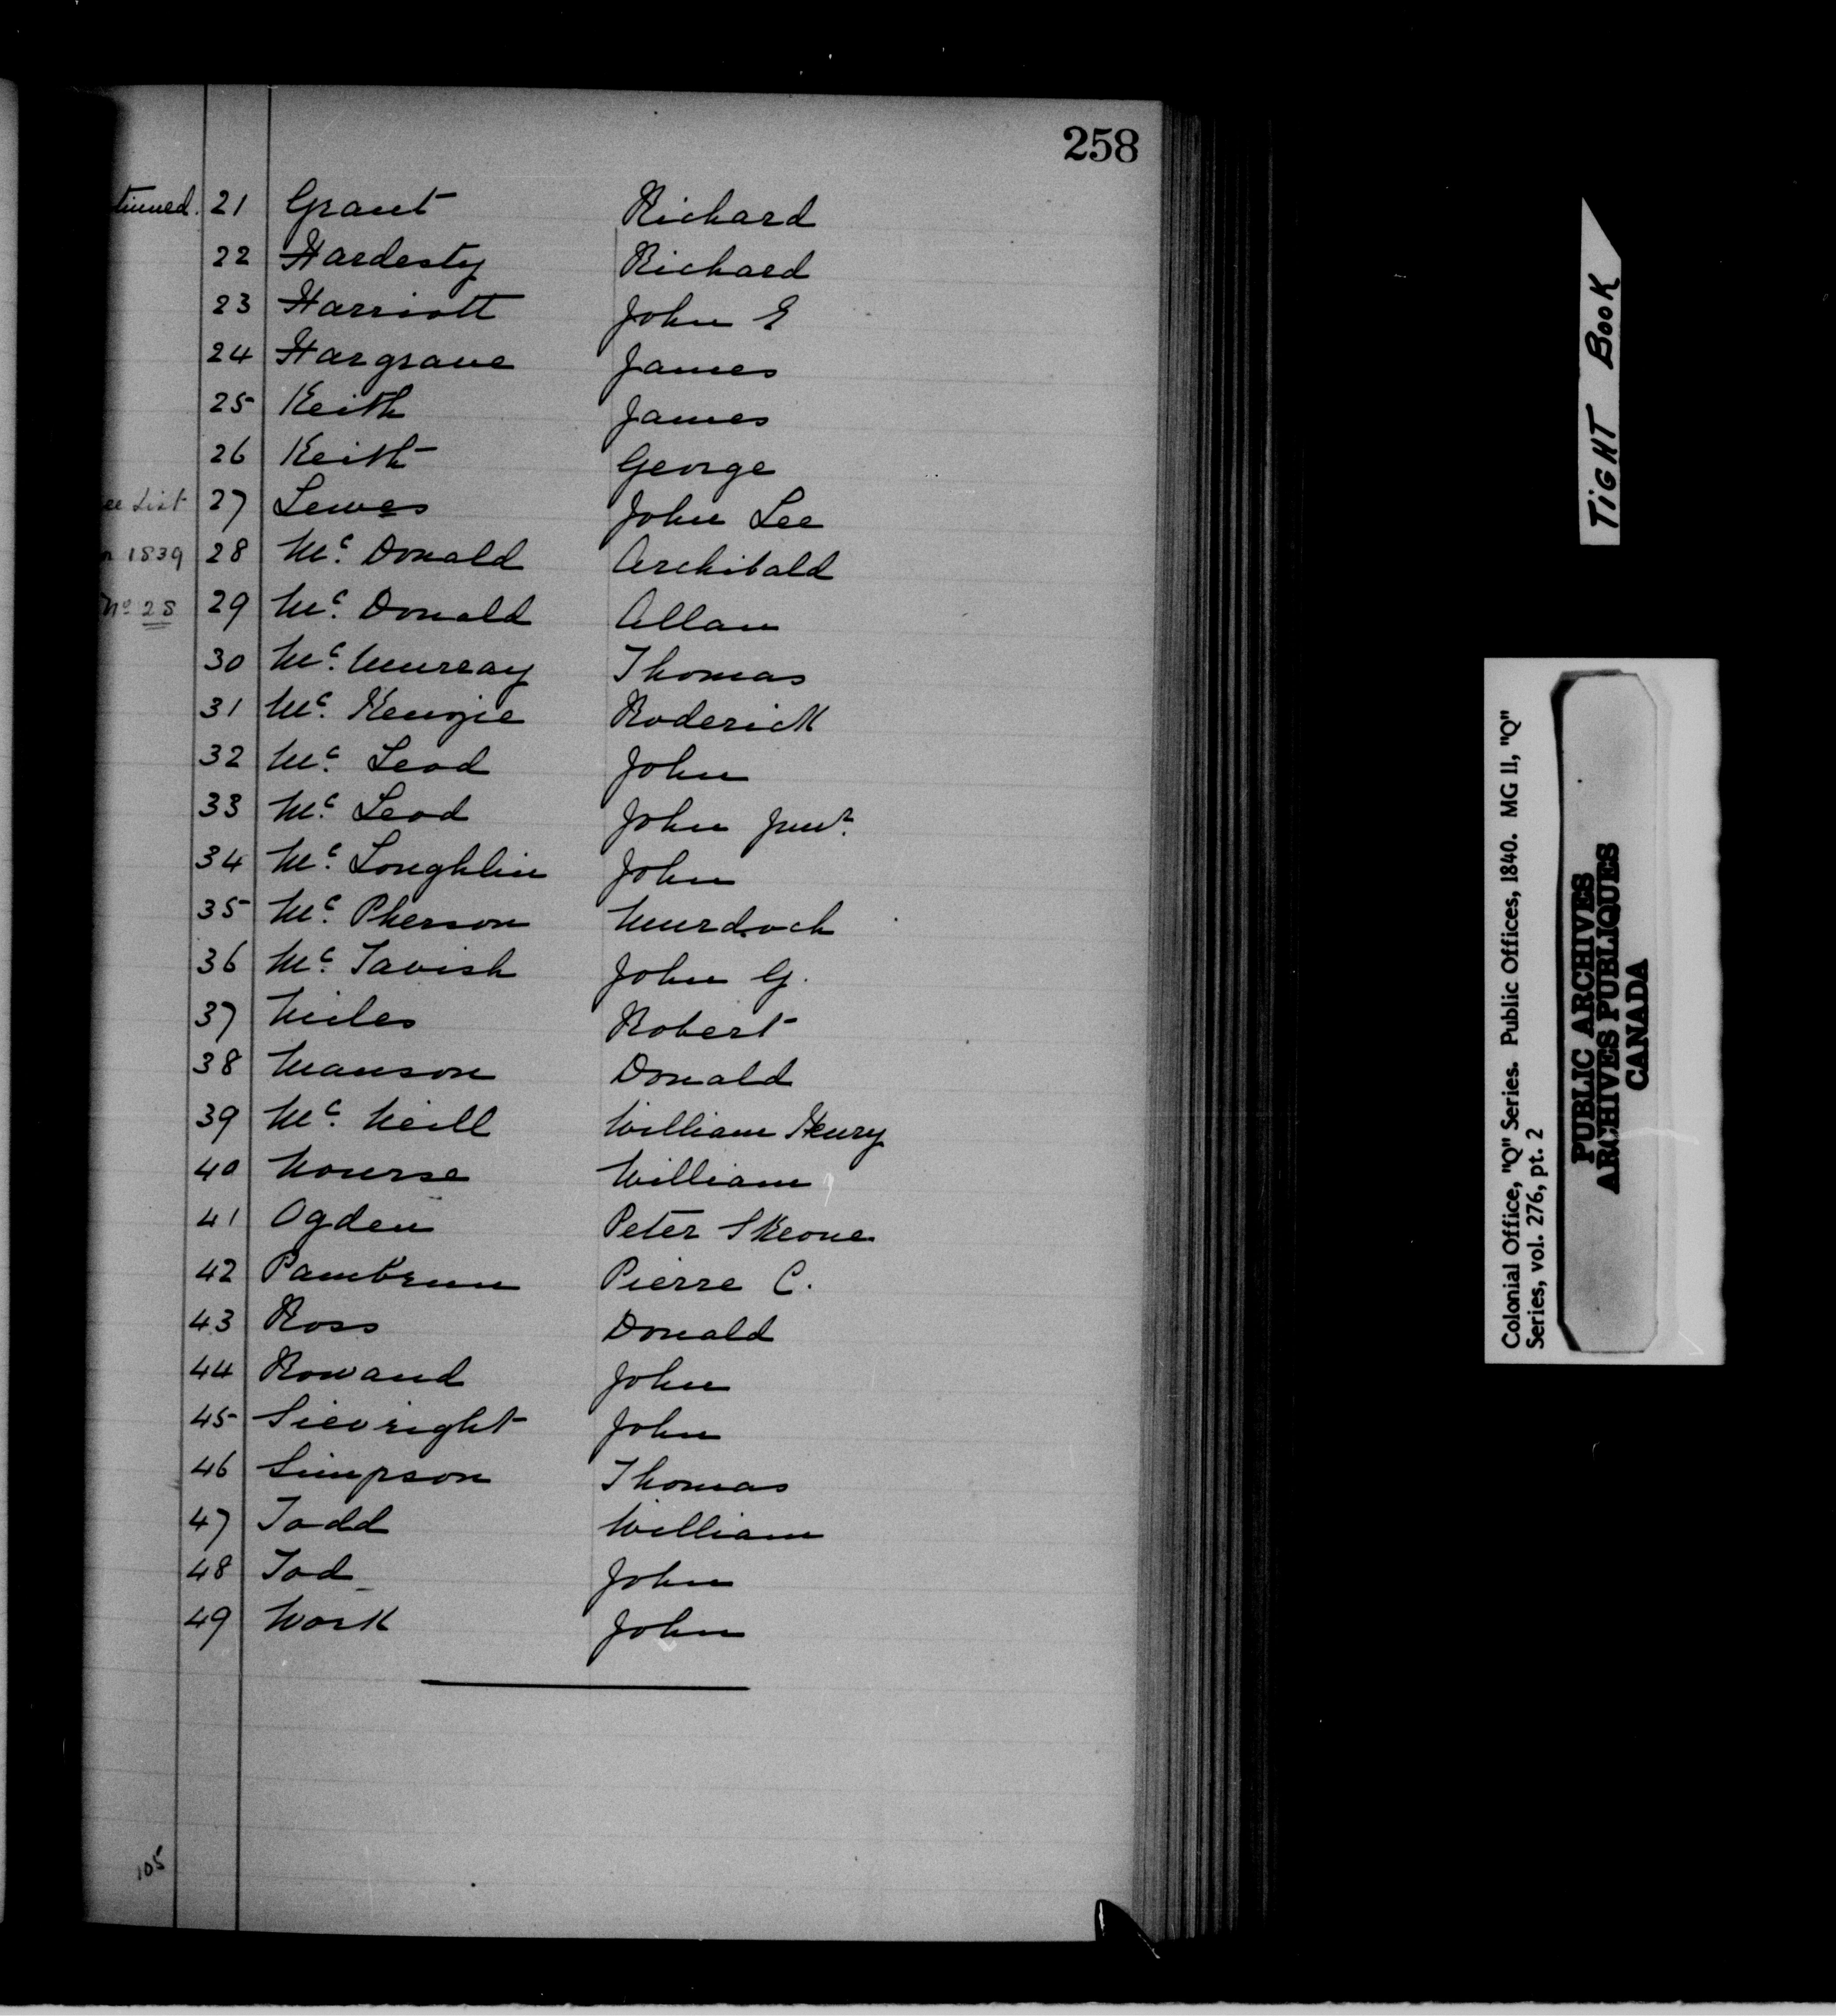 258
tinued. 21 Grant Richard
22 Hardesty Richard
23 Harriott John E
24 Hargrave James
25 Keith James
26 Keith George
ee List 27 Lewes John Lee
1839 28 Mc. Donald Archibald
No 28 29 Mc. Donald Allan
30 Mc. Murray Thomas
31 Mc. Kenzie Roderick
32 Mc. Leod John
33 Mc. Leod John Junr.
34 Mc. Loughlin John
35 Mc. Pherson Murdoch
36 Mc. Tavish John G.
37 Miles Robert
38 Manson Donald
39 Mc. Neill William Henry
40 Nourse William
41 Ogden Peter Skeone
42 Pambrun Pierre C.
43 Ross Donald
44 Rowand John
45 Sievright John
46 Simpson Thomas
47 Todd William
48 Tod John
49 Work John
105
TiGHT BooK
Colonial Office, "Q" Series. Public Offices, 1840. MG 11, "Q"
Series, vol. 276, pt. 2
PUBLIC ARCHIVES
ARCHIVES PUBLIQUES
CANADA